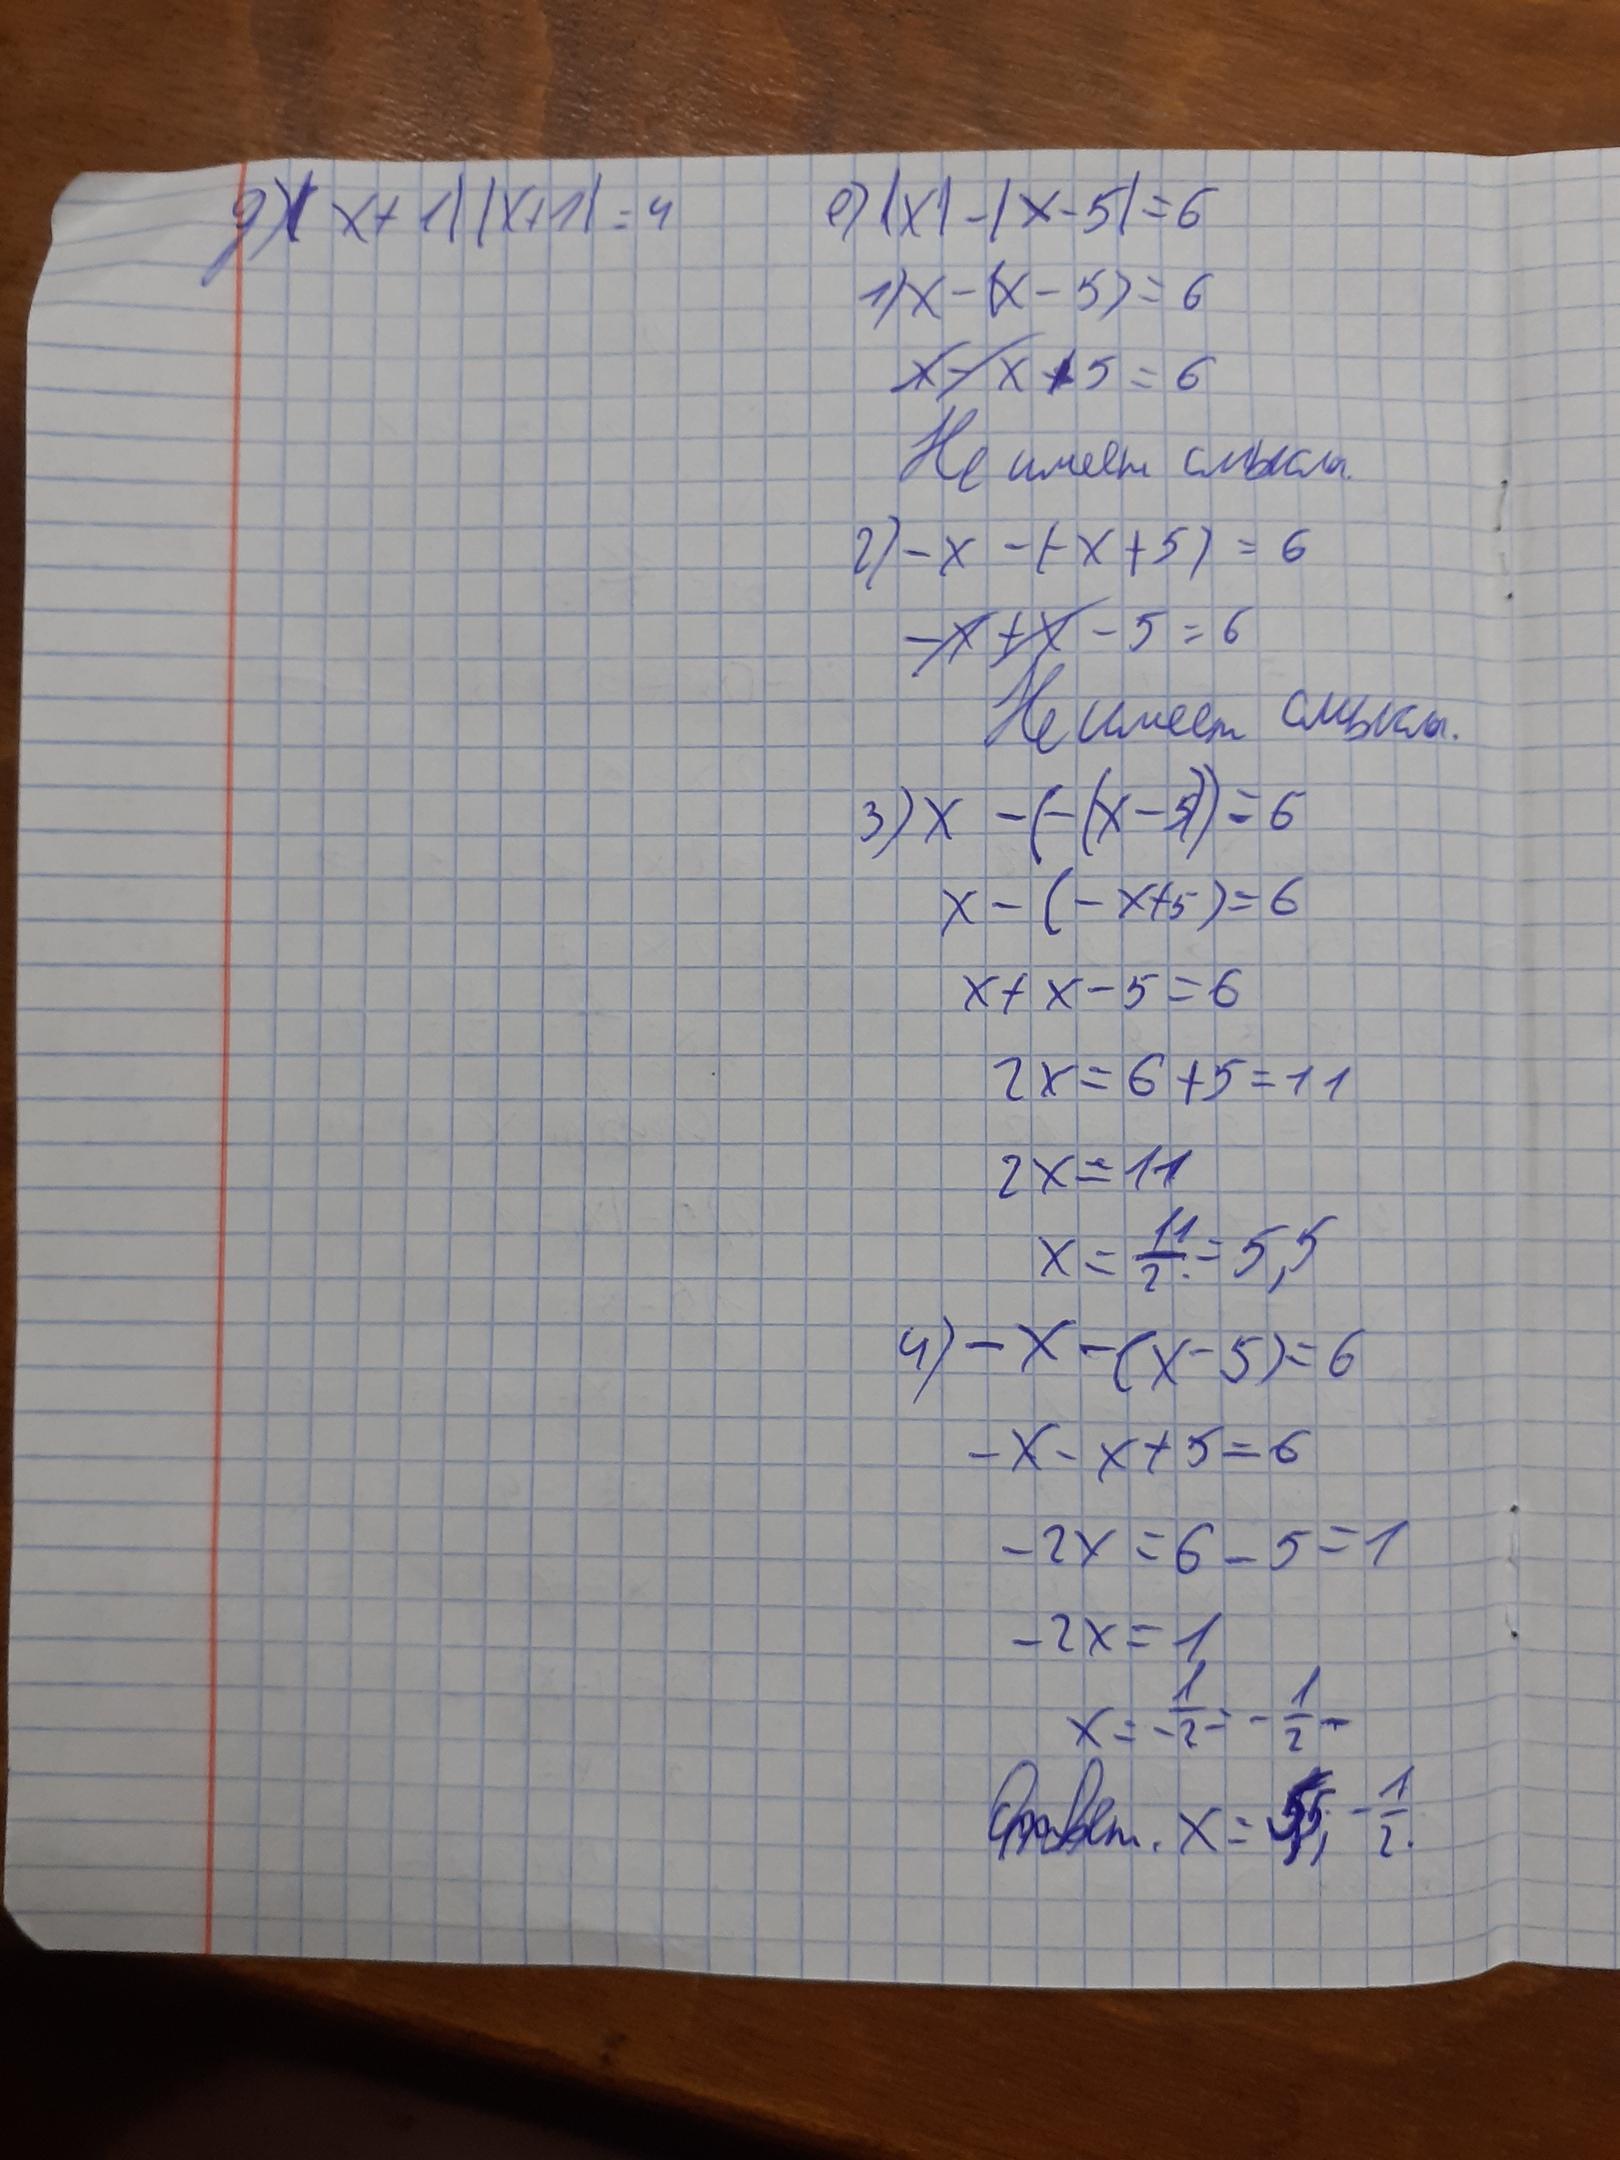 д) |x+1| |x+1| = 4
е) |x| - |x-5| = 6
1) x - (x - 5) = 6
x - x + 5 = 6
Не имеет смысла.
2) -x - (-x + 5) = 6
-x + x - 5 = 6
Не имеет смысла.
3) x - (-(x - 5)) = 6
x - (-x+5) = 6
x + x - 5 = 6
2x = 6 + 5 = 11
2x = 11
x = 11/2 = 5,5
4) -x - (x - 5) = 6
-x - x + 5 = 6
-2x = 6 - 5 = 1
-2x = 1
x = 1/-2 = -1/2
Ответ. x = 5,5, -1/2.